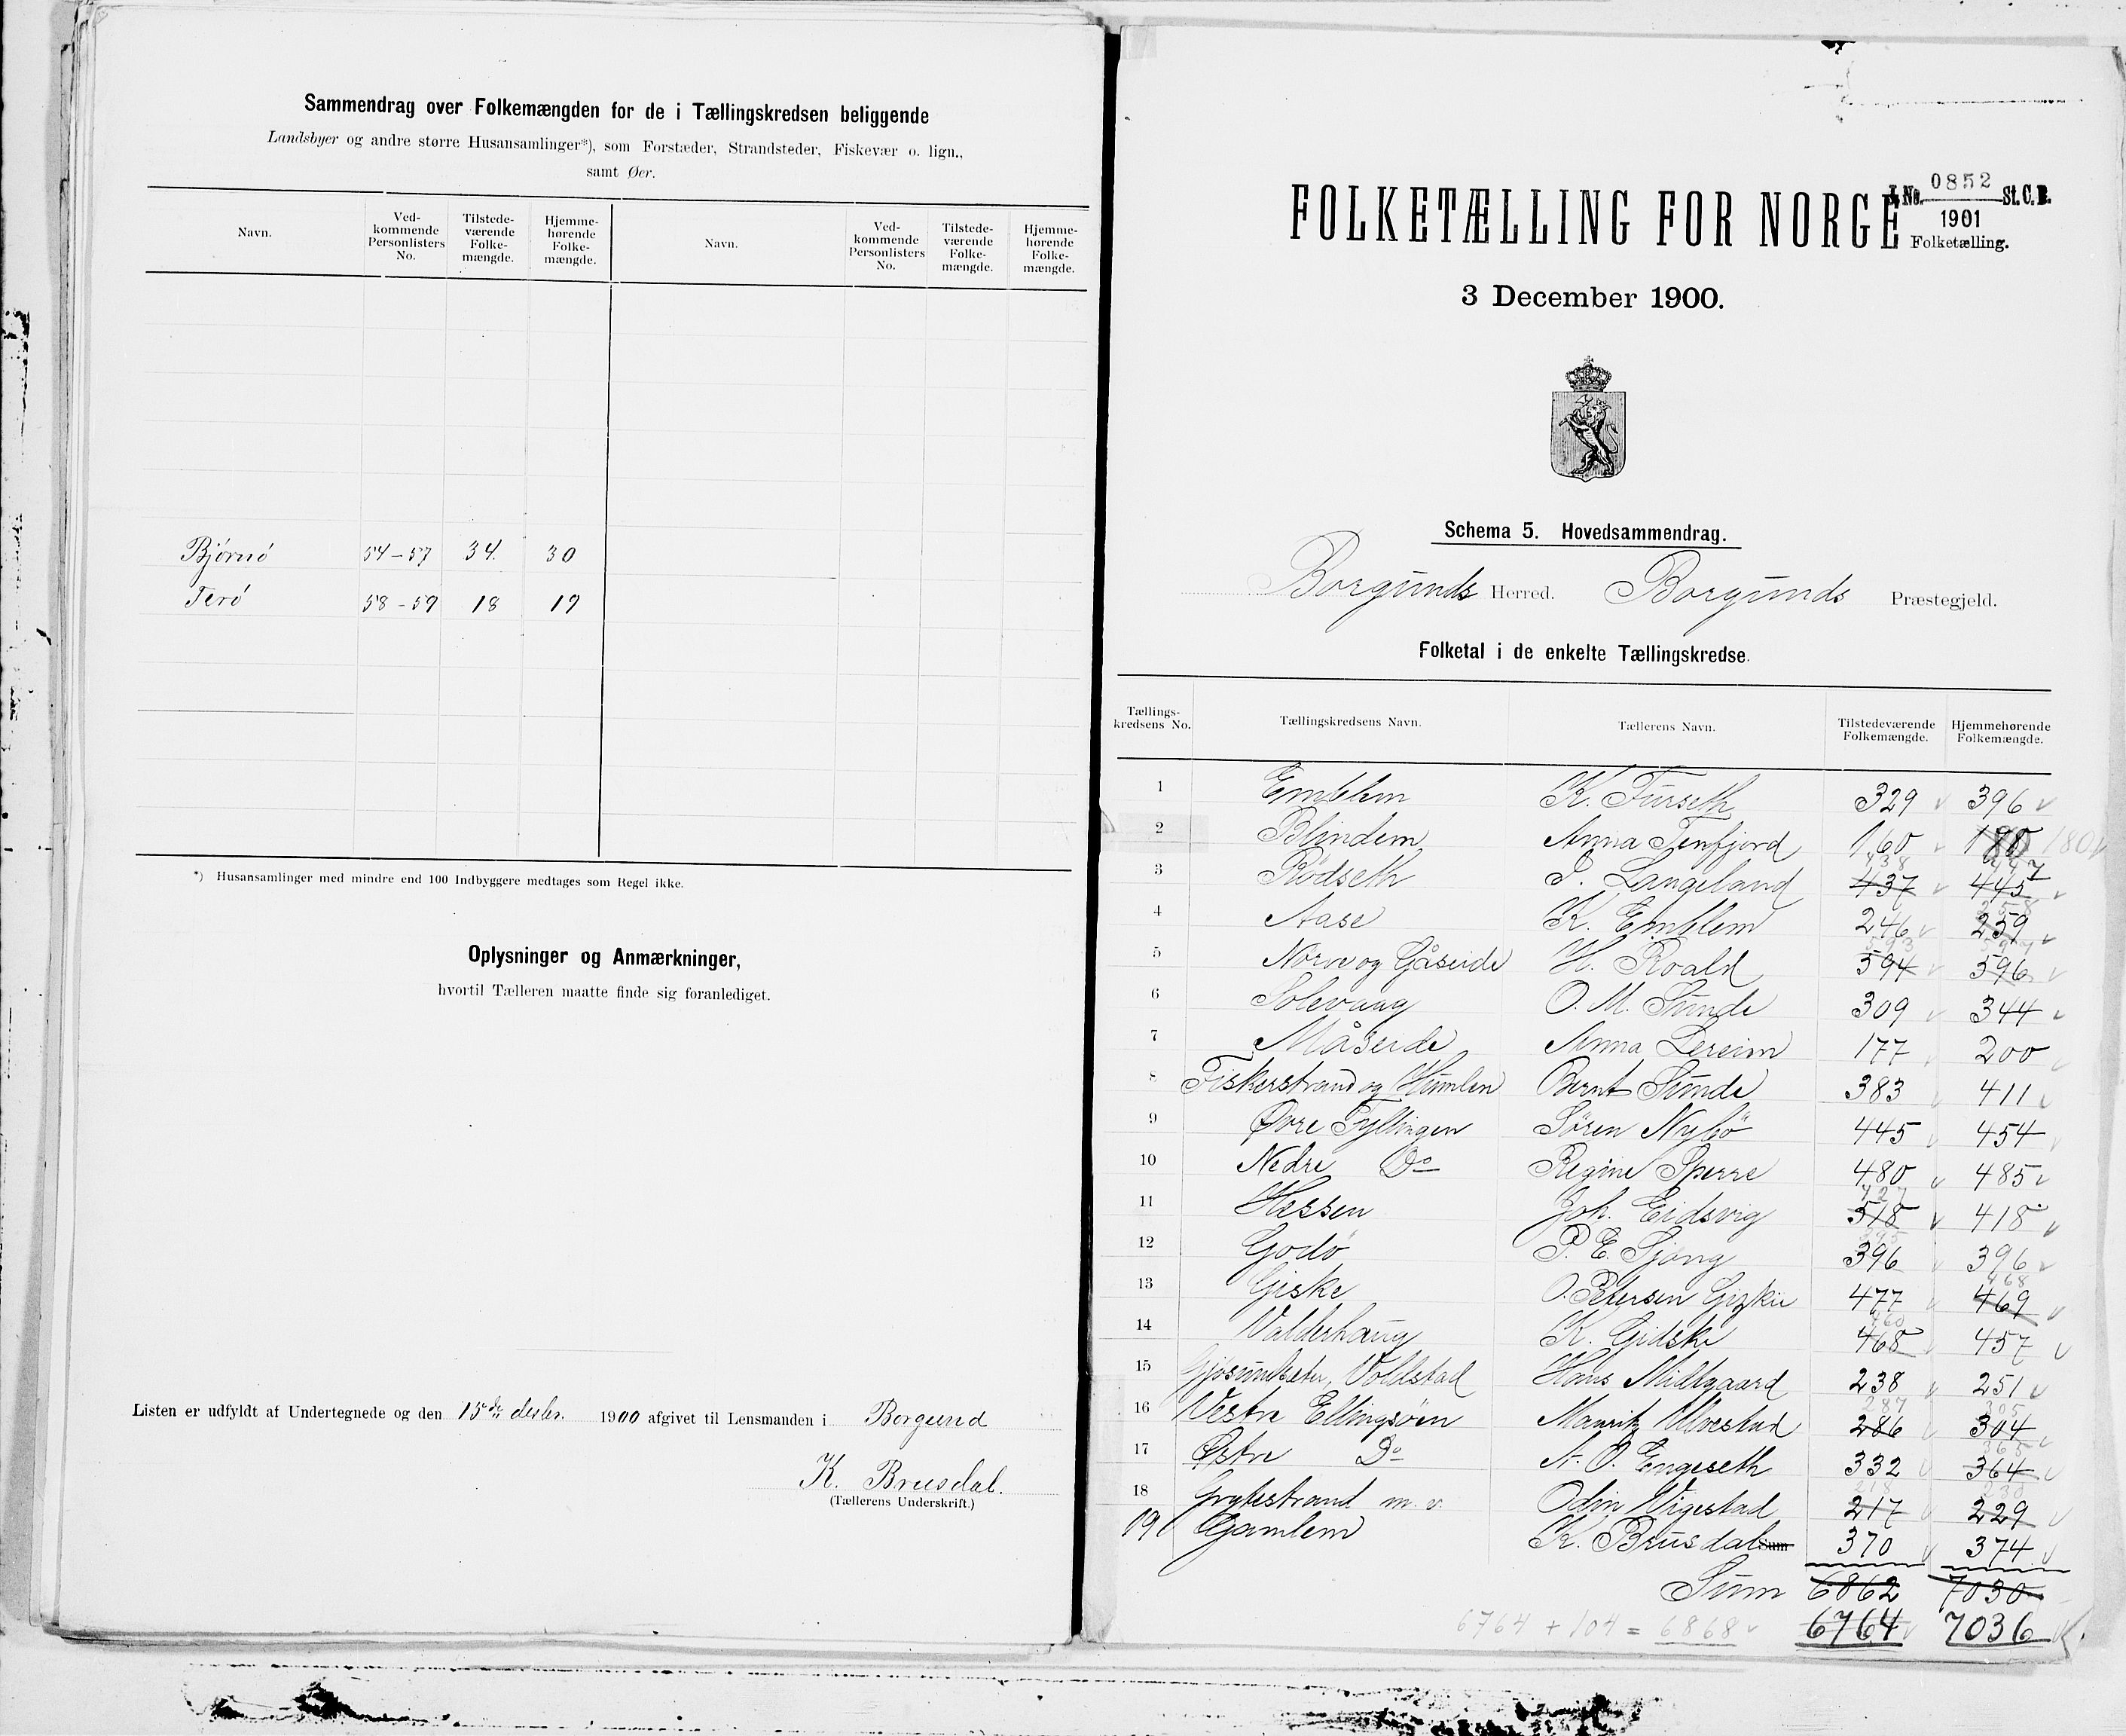 Sammendrag over Folkemængden for de i Tællingskredsen beliggende
Landsbyer og andre større Husansamlinger*), som Forstæder, Strandsteder, Fiskevær o. lign.,
samt Øer.
Navn. Ved-kommende Personlisters No. Tilstede-værende Folke-mængde. Hjemme-hørende Folke-mængde. Navn. Ved-kommende Personlisters No. Tilstede-værende Folke-mængde. Hjemme-hørende Folke-mængde.
Bjørnø 54-57 34. 30
Terø 58-59 18 19
*) Husansamlinger med mindre end 100 Indbyggere medtages som Regel ikke.
Oplysninger og Anmærkninger,
hvortil Tælleren maatte finde sig foranlediget.
Listen er udfyldt af Undertegnede og den 15de decbr. 1900 afgivet til Lensmanden i Borgund
K. Brusdal.
(Tællerens Underskrift.)
J. No. 0852 St. C. B.
1901
Folketælling.
FOLKETÆLLING FOR NORGE
3 December 1900.
Schema 5. Hovedsammendrag.
Borgunds Herred. Borgunds Præstegjeld.
Folketal i de enkelte Tællingskredse.
Tællings-kredsens No. Tællingskredsens Navn. Tællerens Navn. Tilstedeværende Folkemængde. Hjemmehørende Folkemængde.
1 Emblem K. Furseth 329 396
2 Blindem Anna Tenfjord 160 180
438 447
3 Rødseth P. Langeland 437 445
258
4 Aase K. Emblem 246 259
593
5 Nørve og Gåseide H. Roald 594 596
6 Solevaag O. M. Sunde 309 344
7 Måseide Anna Lereim 177 200
8 Fiskerstrand og Humlen Bernt Sunde 383 411
9 Øvre Fyllingen Søren Nybø 445 454
10 Nedre Do Regine Sperre 480 485
427
11 Hessen Joh. Eidsvig 518 418
395
12 Godø P. E. Sjong 396 396
468
13 Giske O. Petersen Gjskie 477 469
460
14 Valderhaug K. Gidske 468 457
15 Gjøsundsæter, Voldstad Hans Midtgaard 238 251
287 305
16 Vestre Ellingsøen Mauritz Ulvestad 286 304
365
17 Østre Do A. O. Engeseth 332 364
218 230
18 Grytestrand m. v. Odin Vigestad 217 229
19 Gamlem K. Brusdal Sum 370 374
Sum 6862 7030
6764 + 104 = 6868 6764 7036